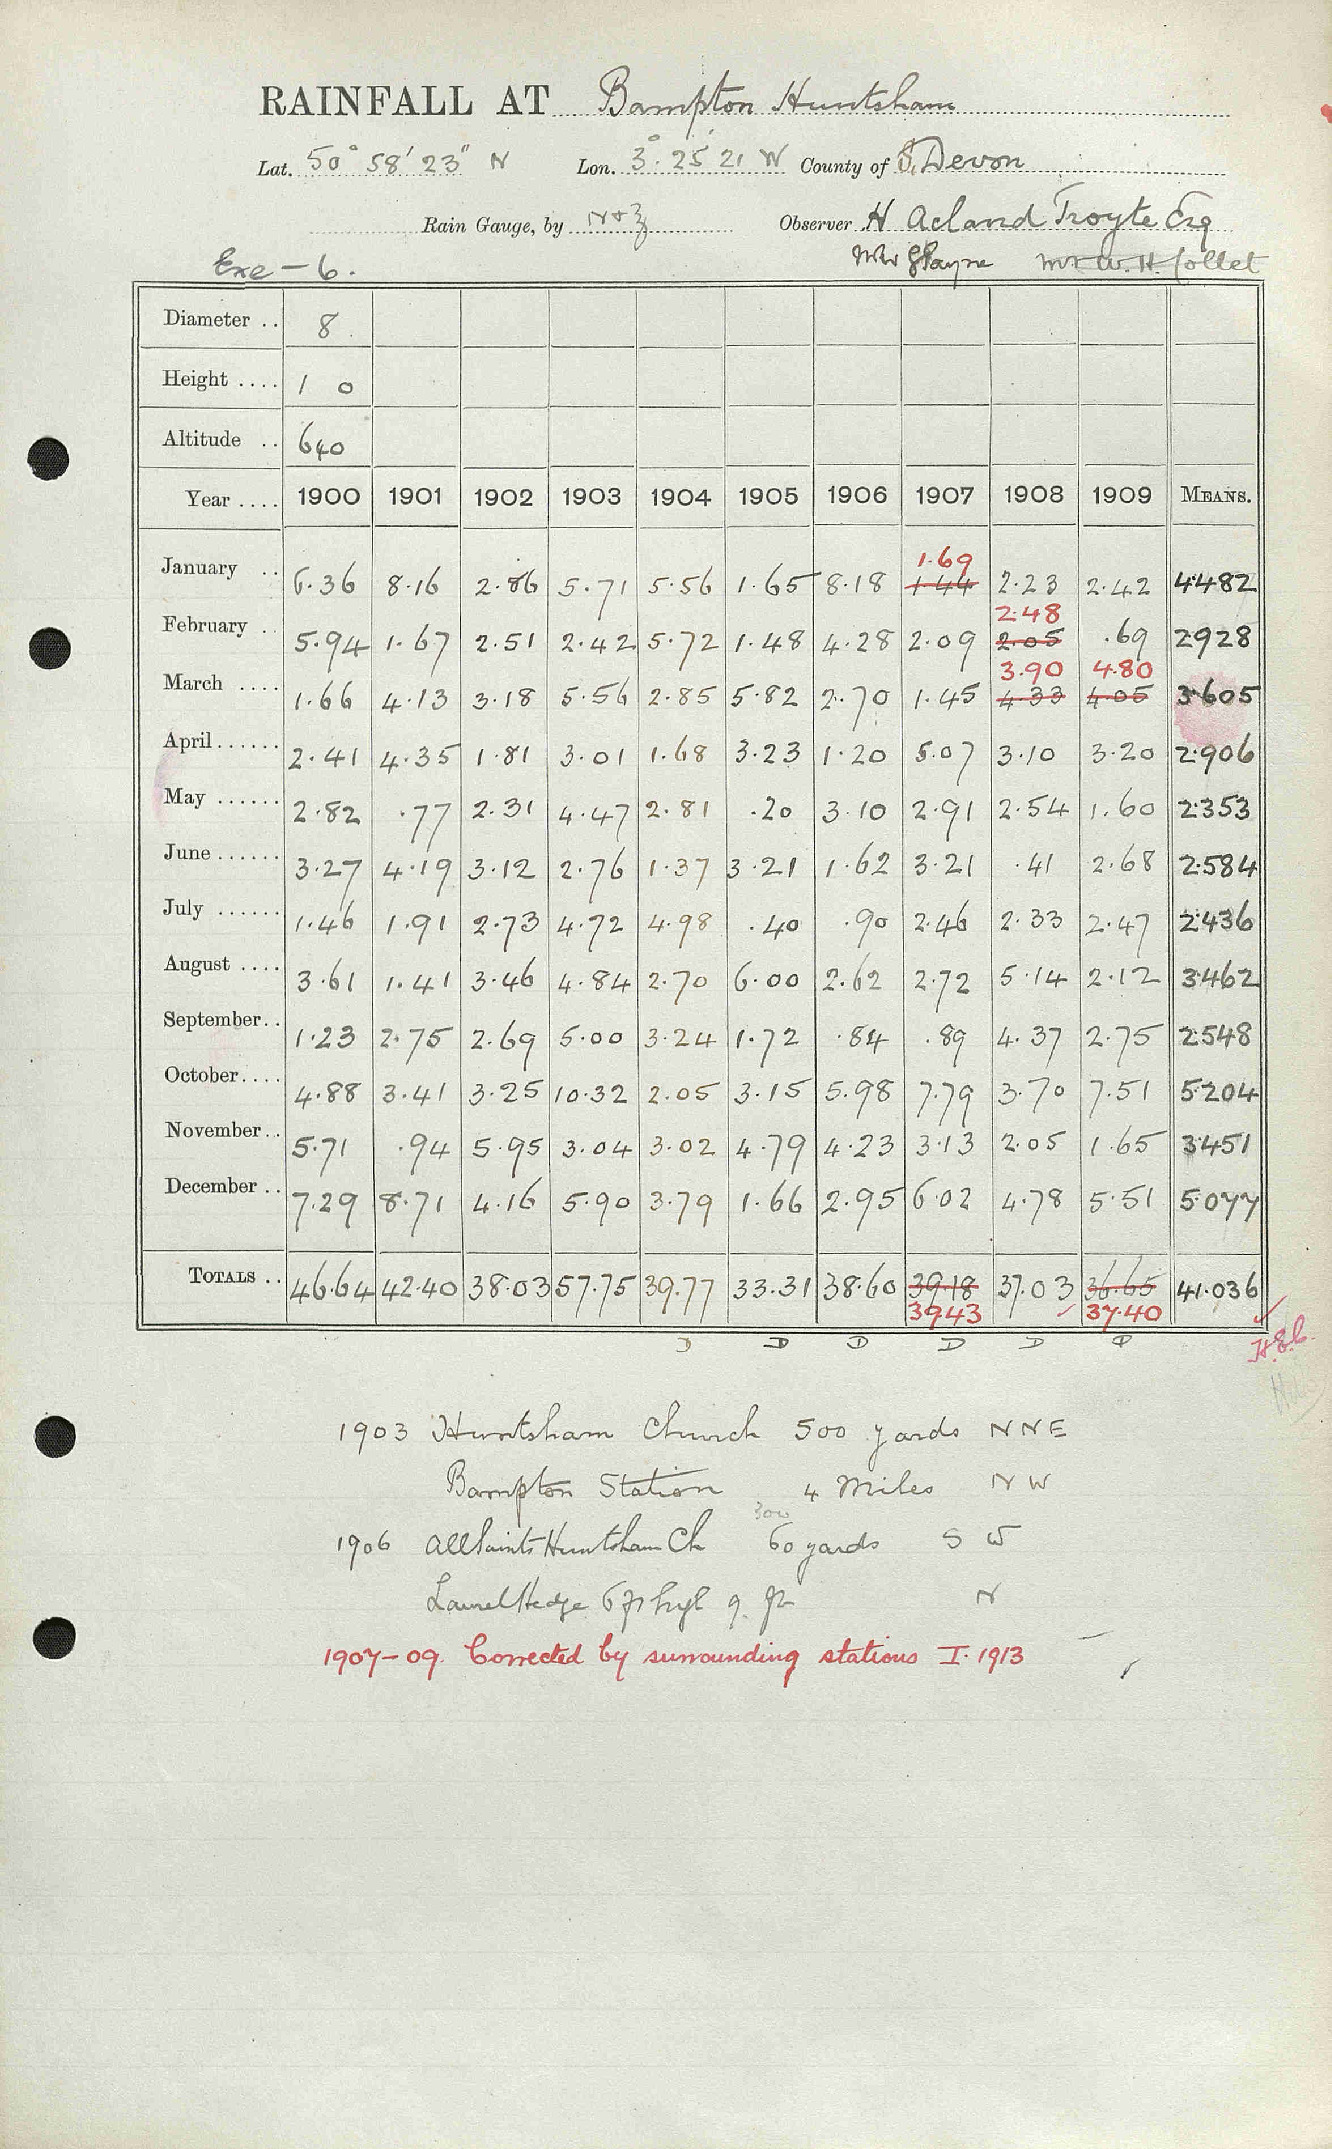 RAINFALL AT Bampton Huntsham
Lat. 50° 58' 23" N Lon. 3° 25' 21 W County of S. Devon
Rain Gauge, by N & Z Observer H Acland Troyte Esq
Exe - 6. Payne Mr W. H. Collet
Diameter .. 8
Height .... 1 0
Altitude .. 640
Year .... 1900 1901 1902 1903 1904 1905 1906 1907 1908 1909 MEANS.
1.69
January .. 6.36 8.16 2.86 5.71 5.56 1.65 8.18 1.44 2.23 2.42 4.482
2.48
February .. 5.94 1.67 2.51 2.42 5.72 1.48 4.28 2.09 2.05 .69 2.928
3.90 4.80
March .... 1.66 4.13 3.18 5.56 2.85 5.82 2.70 1.45 4.33 4.05 3.605
April...... 2.41 4.35 1.81 3.01 1.68 3.23 1.20 5.07 3.10 3.20 2.906
May ...... 2.82 .77 2.31 4.47 2.81 .20 3.10 2.91 2.54 1.60 2.353
June...... 3.27 4.19 3.12 2.76 1.37 3.21 1.62 3.21 .41 2.68 2.584
July ...... 1.46 1.91 2.73 4.72 4.98 .40 .90 2.46 2.33 2.47 2.436
August .... 3.61 1.41 3.46 4.84 2.70 6.00 2.62 2.72 5.14 2.12 3.462
September.. 1.23 2.75 2.69 5.00 3.24 1.72 .84 .89 4.37 2.75 2.548
October.... 4.88 3.41 3.25 10.32 2.05 3.15 5.98 7.79 3.70 7.51 5.204
November.. 5.71 .94 5.95 3.04 3.02 4.79 4.23 3.13 2.05 1.65 3.451
December .. 7.29 8.71 4.16 5.90 3.79 1.66 2.95 6.02 4.78 5.51 5.077
TOTALS .. 46.64 42.40 38.03 57.75 39.77 33.31 38.60 39.18 37.03 36.65 41.036
39.43 37.40
D D D D D D
H.E.C.
1903 Huntsham Church 500 yards NNE
Bampton Station 4 Miles NW
300
1906 All Saints Huntsham Ch 60 yards S W
Laurel Hedge 6 ft N
1907-09. Corrected by surrounding stations I. 1913